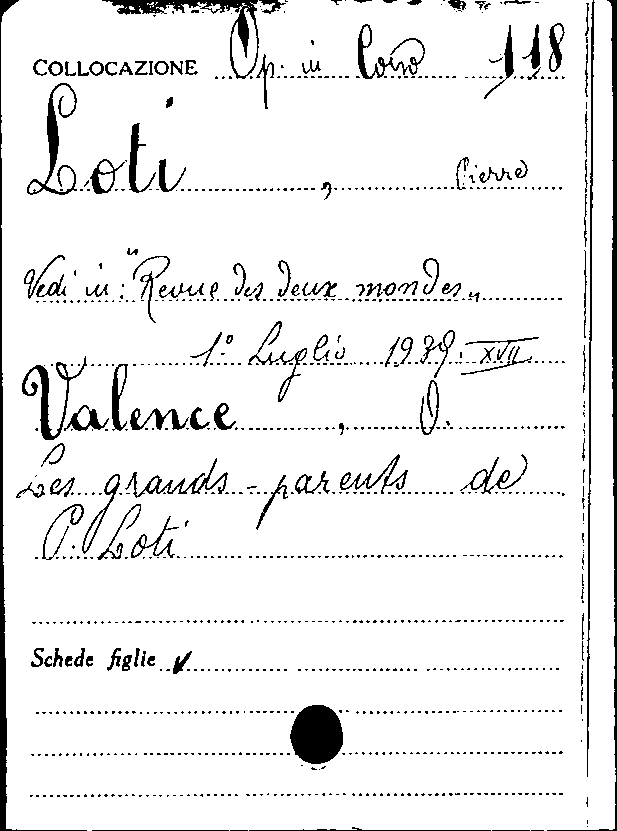 COLLOCAZIONE Op. in Corso 118
Loti, Pierre
Vedi in: "Revue des deux mondes„
1° Luglio 1939. XVII
Valence, O.
Les grands-parents de
P. Loti
Schede figlie ✓